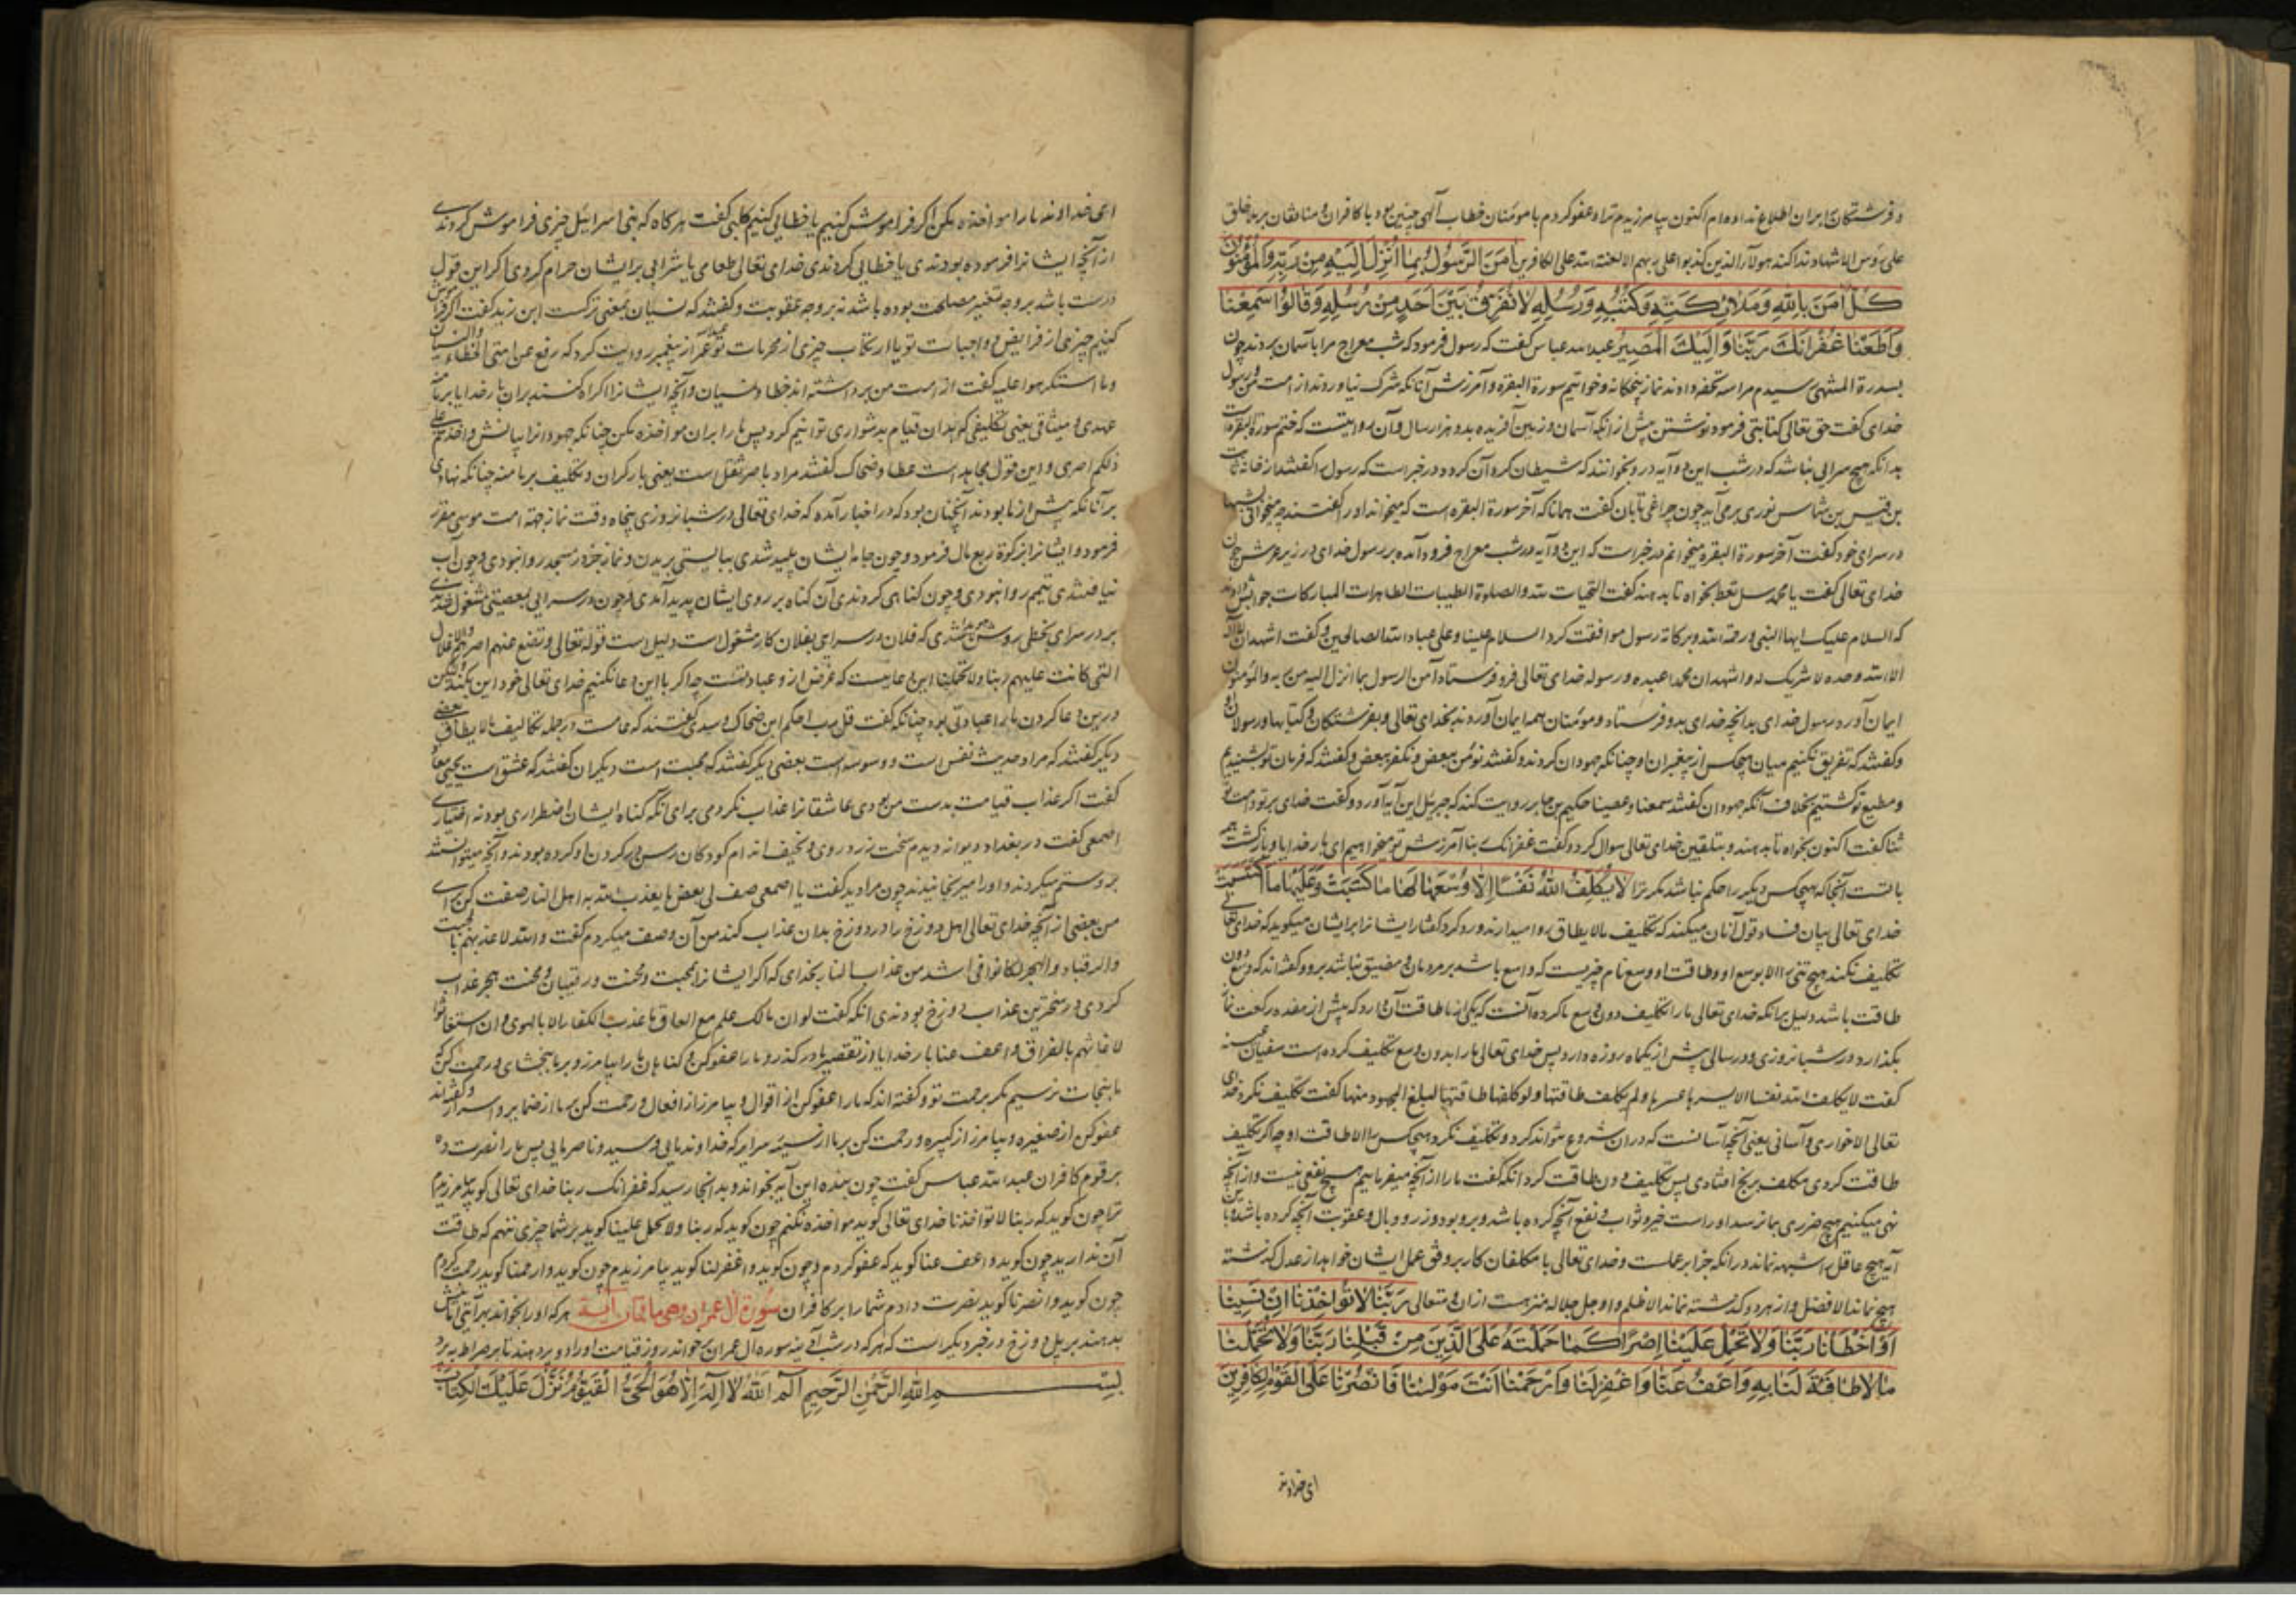 و فرشتگان را بران اطلاع نداده ام اکنون بیامرزیدم ترا و عفو کردم با مومنان خطاب الهی چنین بود با کافران و منافقان بر ملا خلق
علی رؤس الاشهاد ندا کند هولاء الذین کذبوا علی ربهم الا لعنة الله علی الکافرین اٰمَنَ الرَّسُولُ بِمَا اُنْزِلَ اِلَیْهِ مِنْ رَبِّهِ وَالْمُؤْمِنُونَ
کُلٌّ اٰمَنَ بِاللّٰهِ وَمَلَائِکَتِهِ وَکُتُبِهِ وَرُسُلِهِ لَا نُفَرِّقُ بَیْنَ اَحَدٍ مِنْ رُسُلِهِ وَقَالُوا سَمِعْنَا
وَاَطَعْنَا غُفْرَانَکَ رَبَّنَا وَاِلَیْکَ الْمَصِیرُ عبدالله عباس گفت که رسول فرمود که شب معراج مرا باسمان بردند چون
بسدرة المنتهی رسیدم مرا سه تحفه دادند نماز پنجگانه و خواتیم سورة البقره و آمرزش آنانکه شرک نیاوردند از امت من و رسول
خدای گفت حق تعالی کتابتی فرمود نوشتن پیش از آنکه آسمان و زمین آفریده بدو هزار سال و آن دو آیتست که ختم سورة البقره است
بدانکه هیچ سرایی نباشد که در شب این دو آیه درو بخوانند که شیطان گرد آن گردد و در خبر است که رسول را گفتند از خانه ثابت
بن قیس بن شماس نوری برمی آید چون چراغی تابان گفت همانا که آخر سورة البقره است که میخواند او را گفتند چه میخوانی شبها
در سرای خود گفت آخر سورة البقره میخوانم در خبر است که این دو آیه در شب معراج فرود آمده بر رسول خدای در زیر عرش چون
خدای تعالی گفت یا محمد سل تعط بخواه تا بدهند گفت التحیات لله والصلوة الطیبات الطاهرات المبارکات جوابش دادند
که السلام علیک ایها النبی ورحمة الله وبرکاته رسول موافقت کرد السلام علینا وعلی عباد الله الصالحین و گفت اشهد ان لا اله
الا الله وحده لا شریک له واشهد ان محمدا عبده ورسوله خدای تعالی فرو فرستاد آمن الرسول بما انزل الیه من ربه والمؤمنون
ایمان آورد رسول خدای بدانچه خدای بدو فرستاد و مومنان همه ایمان آوردند بخدای تعالی و بفرشتگان و کتابها و رسولان او
و گفتند که تفریق نکنیم میان هیچکس از پیغبران او چنانکه جهودان کردند و گفتند نؤمن ببعض ونکفر ببعض و گفتند که فرمان تو بشنیدیم
و مطیع تو گشتیم بخلاف آنکه جهودان گفتند سمعنا وعصینا حکیم بن جابر روایت کند که جبریل این آیه آورد و گفت خدای بر تو و امت تو
ثنا گفت اکنون بخواه تا بدهند و بتلقین خدای تعالی سوال کرد و گفت غفرانک ربنا آمرزش تو میخواهیم ای بار خدایا و بازگشت همه
با تست آنجا که هیچکس دیگر را حکم نباشد مگر ترا لَا یُکَلِّفُ اللّٰهُ نَفْسًا اِلَّا وُسْعَهَا لَهَا مَا کَسَبَتْ وَعَلَیْهَا مَا اکْتَسَبَتْ
خدای تعالی بیان فساد قول آنان میکند که تکلیف ما لا یطاق روا میدارند و رد کرد گفتار ایشانرا بر ایشان میگوید که خدای تعالی
تکلیف نکند هیچ تنی را الا بوسع او و طاقت او و وسع نام چیزیست که واسع باشد بر مردمان و مضیق نباشد برو و گفته اند که وسع دون
طاقت باشد دلیل برآنکه خدای تعالی ما را تکلیف دون وسع ما کرده آنست که یکی از ما طاقت آن دارد که پیش از هفده رکعت نماز
بگذارد در شبانروزی و در سالی پیش از یکماه روزه دارد پس خدای تعالی ما را بدون وسع تکلیف کرده است سفیان عیینه
گفت لا یکلف الله نفسا الا یسرها عسرها ولم یکلف طاقتها ولو کلفها طاقتها لبلغ المجهود منها گفت تکلیف نکرد خدای
تعالی الا خواری و آسانی یعنی آنچه آسانست که در ان شروع بتواند کرد و تکلیف نکرد هیچ کس را الا طاقت او چه اگر تکلیف
طاقت کردی مکلف برنج افتادی پس تکلیف دون طاقت کرد آنکه گفت ما را از آنچه میفرماییم هیچ نفعی نیست و از آنچه
نهی میکنیم هیچ ضرری بما نرسد او راست خیر و ثواب و نفع آنچه کرده باشد و برو بود وزر و وبال و عقوبت آنچه کرده باشد و با این
آیه هیچ عاقل را شبهه نماند در آنکه جزا بر عملست و خدای تعالی با مکلفان کار بر وفق عمل ایشان خواهد از عدل گذشته
هیچ نماند الا فضل و از هر دو گذشته نماند الا ظلم و او جل جلاله منزهست ازان و متعالی رَبَّنَا لَا تُؤَاخِذْنَا اِنْ نَسِینَا
اَوْ اَخْطَأْنَا رَبَّنَا وَلَا تَحْمِلْ عَلَیْنَا اِصْرًا کَمَا حَمَلْتَهُ عَلَی الَّذِینَ مِنْ قَبْلِنَا رَبَّنَا وَلَا تُحَمِّلْنَا
مَا لَا طَاقَةَ لَنَا بِهِ وَاعْفُ عَنَّا وَاغْفِرْ لَنَا وَارْحَمْنَا اَنْتَ مَوْلٰنَا فَانْصُرْنَا عَلَی الْقَوْمِ الْکَافِرِینَ
ای خداوند
ای خداوند ما را مواخذه مکن اگر فراموش کنیم یا خطایی کنیم کلبی گفت هرگاه که بنی اسرائیل چیزی فراموش کردندی
از آنچه ایشانرا فرموده بودندی یا خطایی کردندی خدای تعالی طعامی یا شرابی بر ایشان حرام کردی اگر این قول
درست باشد بر وجه تغییر مصلحت بوده باشد نه بر وجه عقوبت و گفتند که نسیان بمعنی ترکست ابن زید گفت اگر فراموش
کنیم چیزی از فرایض و واجبات تو یا ارتکاب چیزی از محرمات تو عبدالله عمر از پیغمبر روایت کرد که رفع عن امتی الخطاء والنسیان
وما استکرهوا علیه گفت از امت من برداشته اند خطا و نسیان و آنچه ایشانرا اکراه کنند بران بار خدایا بر ما منه
عهدی و میثاقی یعنی تکلیفی که بدان قیام بدشواری توانیم کرد پس ما را بران مواخذه مکن چنانکه جهودانرا بیانش واخذتم علی
ذلکم اصری و این قول مجاهد است عطا و ضحاک گفتند مراد باصر ثقل است یعنی بار گران و تکلیف بر ما منه چنانکه نهادی
بر آنانکه پیش از ما بودند آنچنان بود که در اخبار آمده که خدای تعالی در شبانروزی پنجاه وقت نماز جهة امت موسی مقرر
فرمود و ایشانرا از زکوة ربع مال فرمود و چون جامه ایشان پلید شدی ببایستی بریدن و نماز جز در مسجد روا نبودی و چون آب
نیافتندی تیمم روا نبودی و چون گناهی کردندی آن گناه بر روی ایشان پدید آمدی و چون در سرایی بمعصیتی مشغول شدندی
بر در سرای بخطی روشن نوشته شدی که فلان در سرای بفلان کار مشغول است دلیل است قوله تعالی ویضع عنهم اصرهم والاغلال
التی کانت علیهم ربنا ولا تحملنا این دعاییست که غرض ازو عبادتست چه اگر ما این دعا نکنیم خدای تعالی خود این نکند ولیکن
درین دعا کردن ما را عبادتی بود چنانکه گفت قل رب احکم ابن ضحاک و سدی گفتند که عامست در جمله تکالیف ما لا یطاق بعضی
دیگر گفتند که مراد حدیث نفس است و وسوسه است بعضی دیگر گفتند که محبت است دیگران گفتند که عشق است یحیی معاذ
گفت اگر عذاب قیامت بدست من بودی عاشقانرا عذاب نکردمی برای آنکه گناه ایشان اضطراری بود نه اختیاری
اصمعی گفت در بغداد دیوانه دیدم سخت زرد روی و نحیف اندام کودکان رسن در گردن او کرده بودند و آنچه میتوانستند
جور و ستم میکردند و او را میرنجانیدند چون مرا دید گفت یا اصمعی صف لی بعض ما یعذب الله به اهل النار صفت کن برای
من بعضی از آنچه خدای تعالی اهل دوزخ را در دوزخ بدان عذاب کند من آن وصف میکردم گفت والله لا عذبهم بالمحبت
والرقباء والهجر لکانوا فی اشد من عذاب النار بخدای که اگر ایشانرا بمحبت و محنت و رقیبان و محنت هجر عذاب
کردی در سختترین عذاب دوزخ بودندی آنکه گفت لو ان مالک علم مع العاق ما عذب الکفار الا بالهوی وان استغاثوا
لاغاثهم بالفراق واعف عنا بار خدایا از تقصیر ما در گذر و ما را عفو کن و گناهان ما را بیامرز و بر ما ببخشای و رحمت کن که
ما بنجات نرسیم مگر برحمت تو و گفته اند که ما را عفو کن از اقوال و بیامرز از افعال و رحمت کن بر ما از ضمایر و اسرار و گفته اند
عفو کن از صغیره و بیامرز از کبیره و رحمت کن بر ما از سیئه سرایر که خداوند مایی و سید و ناصر مایی پس ما را نصرت ده
بر قوم کافران عبدالله عباس گفت چون بنده این آیه بخواند و بدانجا رسید که غفرانک ربنا خدای تعالی گوید بیامرزیدم
ترا چون گوید که ربنا لا تؤاخذنا خدای تعالی گوید مواخذه نکنم چون گوید که ربنا ولا تحمل علینا گوید بر شما چیزی ننهم که طاقت
آن ندارید چون گوید واعف عنا گوید که عفو کردم و چون گوید واغفر لنا گوید بیامرزیدم چون گوید وارحمنا گوید رحمت کردم
چون گوید وانصرنا گوید نصرت دادم شما را بر کافران سُورَة آل عمران وهی مائتان آیة هر که او را بخواند بهر آیتی امانش
بدهند بر پل دوزخ و در خبر دیگر است که هر که در شب آدینه سوره آل عمران بخواند روز قیامت او را دو پر دهند تا بر صراط بپرد
بِسْمِ اللّٰهِ الرَّحْمٰنِ الرَّحِیمِ الٓمٓ اَللّٰهُ لَا اِلٰهَ اِلَّا هُوَ الْحَیُّ الْقَیُّومُ نَزَّلَ عَلَیْکَ الْکِتَابَ